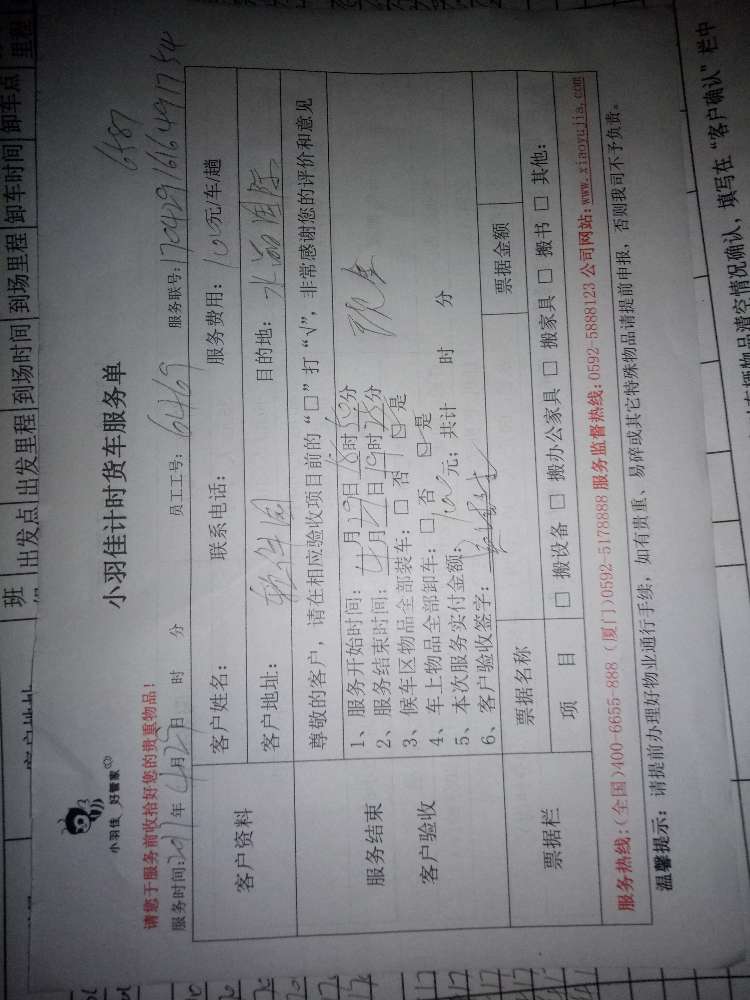 小羽佳 好管家
小羽佳计时货车服务单
6587
请您于服务前收拾好您的贵重物品！
服务时间: 年4月29日 时 分 员工工号: 6469 服务联号:
客户资料
客户姓名: 联系电话: 服务费用: 100元/车/趟
客户地址: 软件园 目的地: 水晶国际
服务结束
客户验收
尊敬的客户, 请在相应验收项目前的“□”打“√”, 非常感谢您的评价和意见
1、服务开始时间: 4月29日18时50分 现金
2、服务结束时间: 4月29日19时25分
3、候车区物品全部装车: □ 否 ☑ 是
4、车上物品全部卸车: □ 否 ☑ 是
5、本次服务实付金额: 100元; 共计 时 分
6、客户验收签字:
票据栏
票据名称 票据金额
项 目 □ 搬设备 □ 搬办公家具 □ 搬家具 □ 搬书 □ 其他:
服务热线:(全国)400-6655-888 (厦门)0592-5178888 服务监督热线:0592-5888123 公司网站:www.xiaoyujia.com
温馨提示: 请提前办理好物业通行手续, 如有贵重、易碎或其它特殊物品请提前申报, 否则我司不予负责。
班 出发点 出发里程 到场时间 到场里程 卸车时间 卸车点 里程
客户地址
车辆物品清空情况确认, 填写在“客户确认”栏中